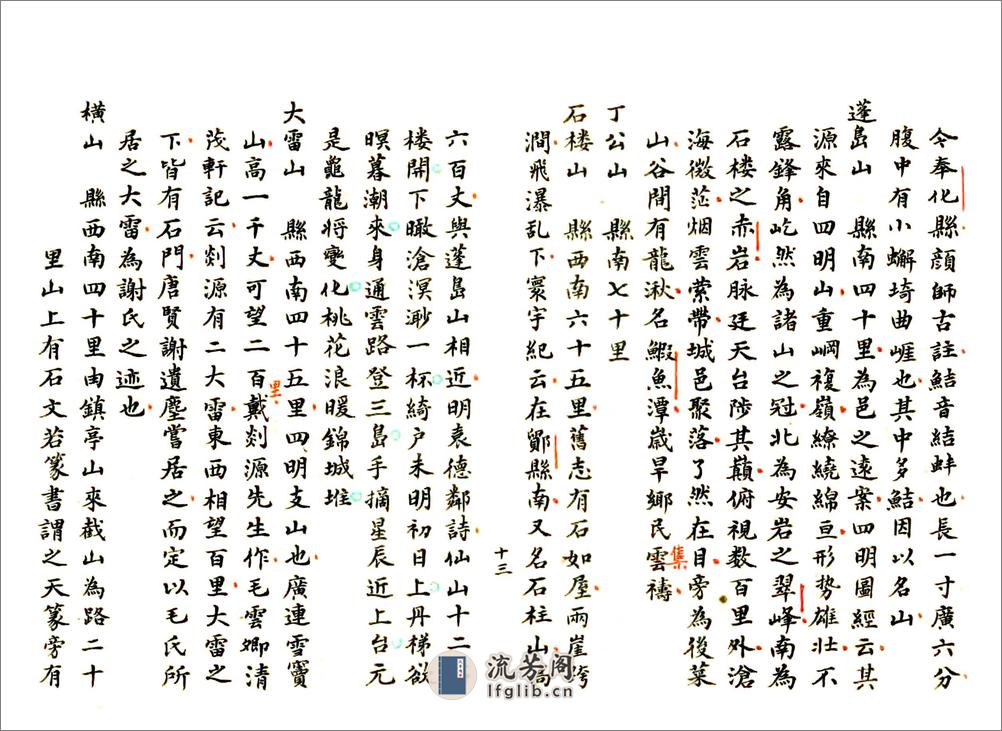 今奉化縣顔師古註鮚音結蚌也長一寸廣六分
腹中有小蠏埼曲崕也其中多鮚因以名山
蓬島山 縣南四十里為邑之遠案四明圖經云其
源來自四明山重岡複嶺繚繞綿亘形势雄壮不
露鋒角屹然為諸山之冠北為安岩之翠峰南為
石楼之赤岩脉廷天台陟其巔俯視数百里外滄
海微茫烟雲縈带城邑聚落了然在目旁為後菜
山谷間有龍湫名鰕魚潭歳旱鄉民雲禱
集
丁公山 縣南七十里
石楼山 縣西南六十五里舊志有石如屋兩崖跨
澗飛瀑乱下寰宇紀云在鄮縣南又名石柱山高
十三
六百丈與蓬島山相近明袁德鄰詩仙山十二
楼開下瞰滄溟渺一杯綺户未明初日上丹梯欲
暝暮潮來身通雲路登三島手摘星辰近上台元
是龜龍将變化桃花浪暖錦城堆
大雷山 縣西南四十五里四明支山也廣連雪竇
山高一千丈可望二百戴剡源先生作毛雲卿清
里
茂軒記云剡源有二大雷東西相望百里大雷之
下皆有石門唐賢謝遺塵嘗居之而定以毛氏所
居之大雷為謝氏之迹也
横山 縣西南四十里由鎮亭山來截山為路二十
里山上有石文若篆書謂之天篆旁有
流芳阁
lfglib.cn